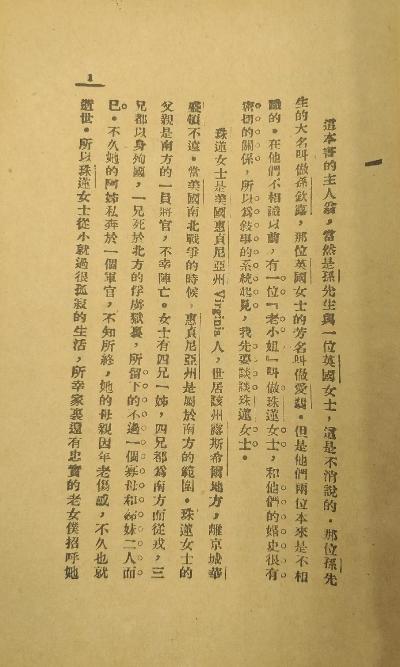 這本書的主人翁，當然是孫先生與一位英國女士，這是不消說的．那位孫先
生的大名叫做孫欽露，那位英國女士的芳名叫做愛．但是他們兩位本來是不相
識的．在他們不相識以前，有一位『老小姐』叫做珠蓮女士，和他們的婚史很有
密切的關係，所以為敍事的系統起見，我先要談談珠蓮女士．
珠蓮女士是美國惠貞尼亞州 Virginia 人，世居該州露斯希爾地方，離京城華
盛頓不遠．當美國南北戰爭的時候，惠貞尼亞州是屬於南方的範圍．珠蓮女士的
父親是南方的一員將官，不幸陣亡．女士有四兄一姊，四兄都為南方而從戎，三
兄都以身殉國，一兄死於北方的俘虜獄裏，所留下的不過一個寡母和姊妹二人而
已．不久她的阿姊私奔於一個軍官，不知所終，她的母親因年老傷感，不久也就
逝世．所以珠蓮女士從小就過很孤寂的生活，所幸家裏還有忠實的老女僕招呼她
1